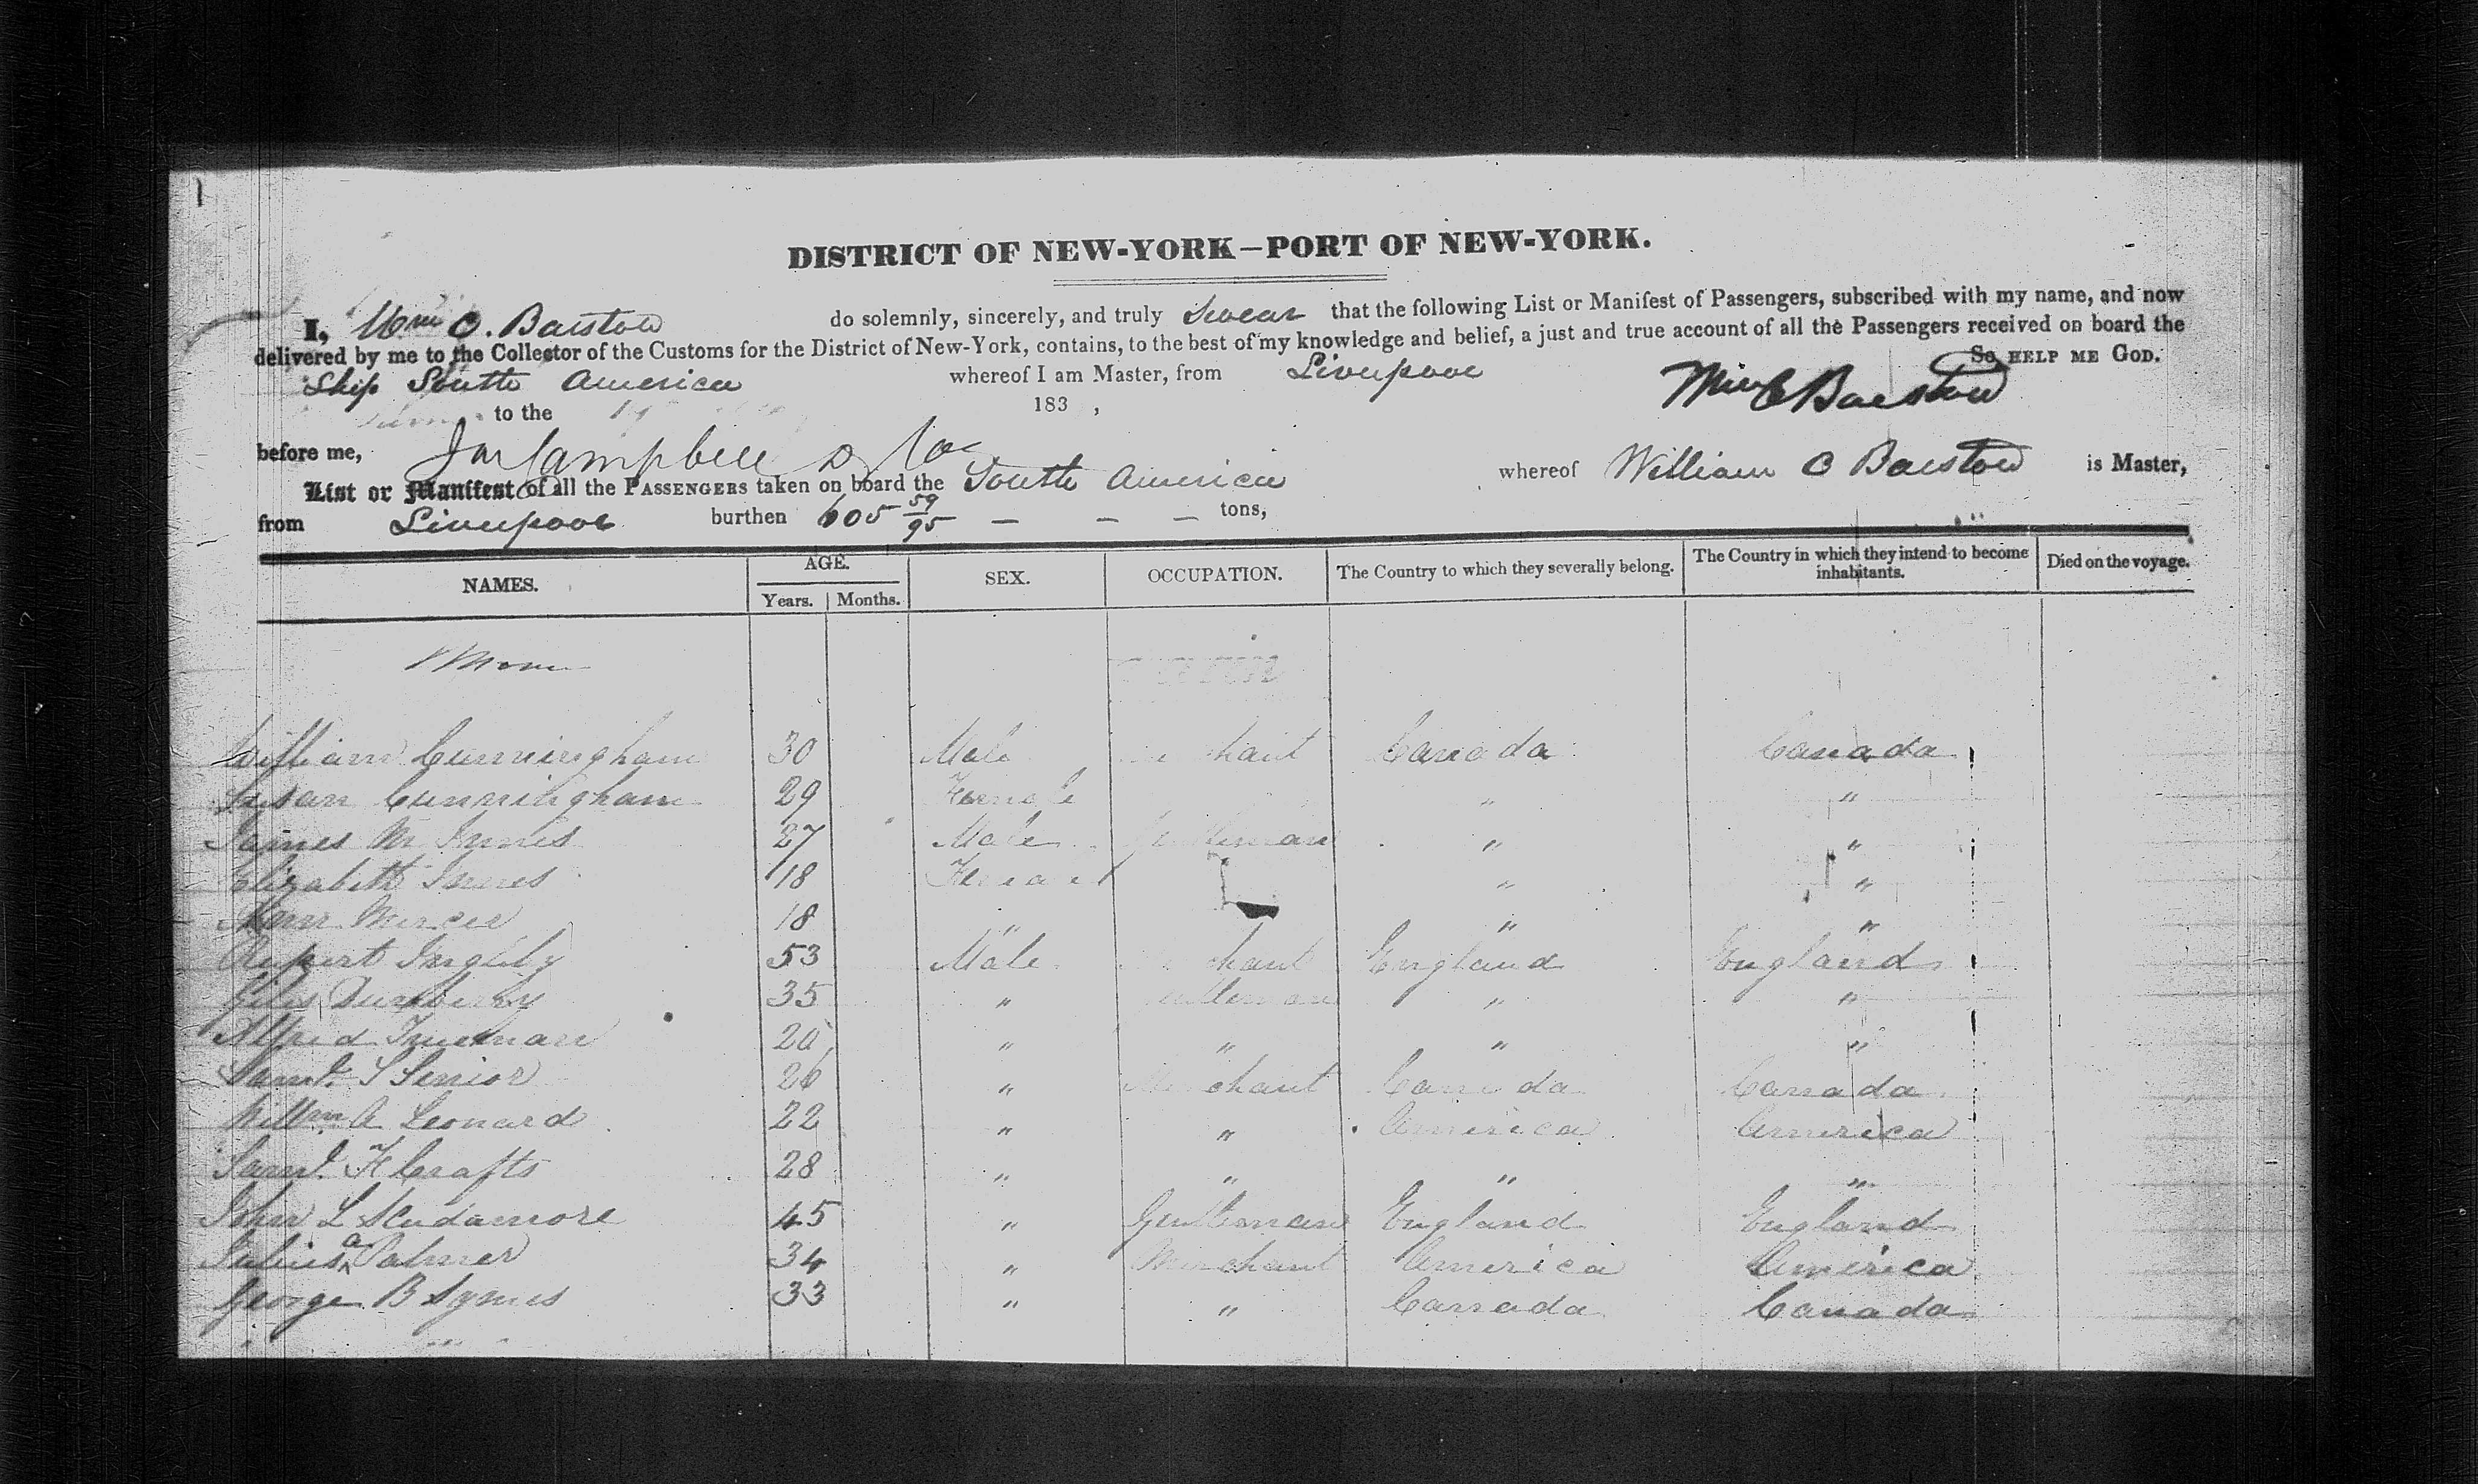 DISTRICT OF NEW-YORK—PORT OF NEW-YORK.
I, Wm C. Barstow do solemnly, sincerely, and truly Swear that the following List or Manifest of Passengers, subscribed with my name, and now
delivered by me to the Collector of the Customs for the District of New-York, contains, to the best of my knowledge and belief, a just and true account of all the Passengers received on board the
Ship South America whereof I am Master, from Liverpool So HELP ME GOD.
to the 183 , Wm C Barstow
before me, Campbell
List or Manifest of all the PASSENGERS taken on board the South America whereof William C Barstow is Master,
from Liverpool burthen 605 59/95 — — — tons,
NAMES. AGE. Years. Months. SEX. OCCUPATION. The Country to which they severally belong. The Country in which they intend to become inhabitants. Died on the voyage.
William Cunningham 30 Male chant Canada Canada
Susan Cunningham 29 Female " "
James M Innes 27 Male Gentleman " "
Elizabeth Innes 18 Female " "
Ann Mercer 18 " " "
Rupert 53 Male chant England England
Giles 35 " " "
Alfred Trueman 20 " " " "
Saml. S Senior 26 " Merchant Canada Canada
Willm A Leonard 22 " " America America
Saml. F Crafts 28 " " " "
John L Scudamore 45 " Gentleman England England
Julius a Palmer 34 " Merchant America America
George B Symes 33 " " Canada Canada